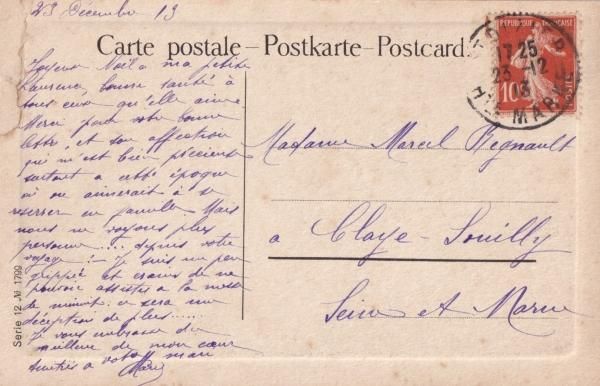 23 Décembre 13
Carte postale – Postkarte – Postcard.
Joyeux Noël a ma petite
Laurence, bonne santé à
tous ceux qu'elle aime
Merci pour votre bonne
lettre, et son affection
qui m'est bien précieuse
surtout a cette époque
où on aimerait à se
resserrer en famille – Mais
nous ne voyons plus
personne !.. depuis votre
voyage ! – Je suis un peu
grippée et crains de ne
pouvoir assister a la messe
de minuit. ce sera une
déception de plus.....
Je vous embrasse du
meilleur de mon cœur
amitiés a votre mari
Marie
Serie 12 № 1799
REPUBLIQUE FRANÇAISE
10
POSTES
17 25
23 - 12
13
Hte MARNE
Madame Marcel Regnault
a Claye-Souilly
Seine et Marne